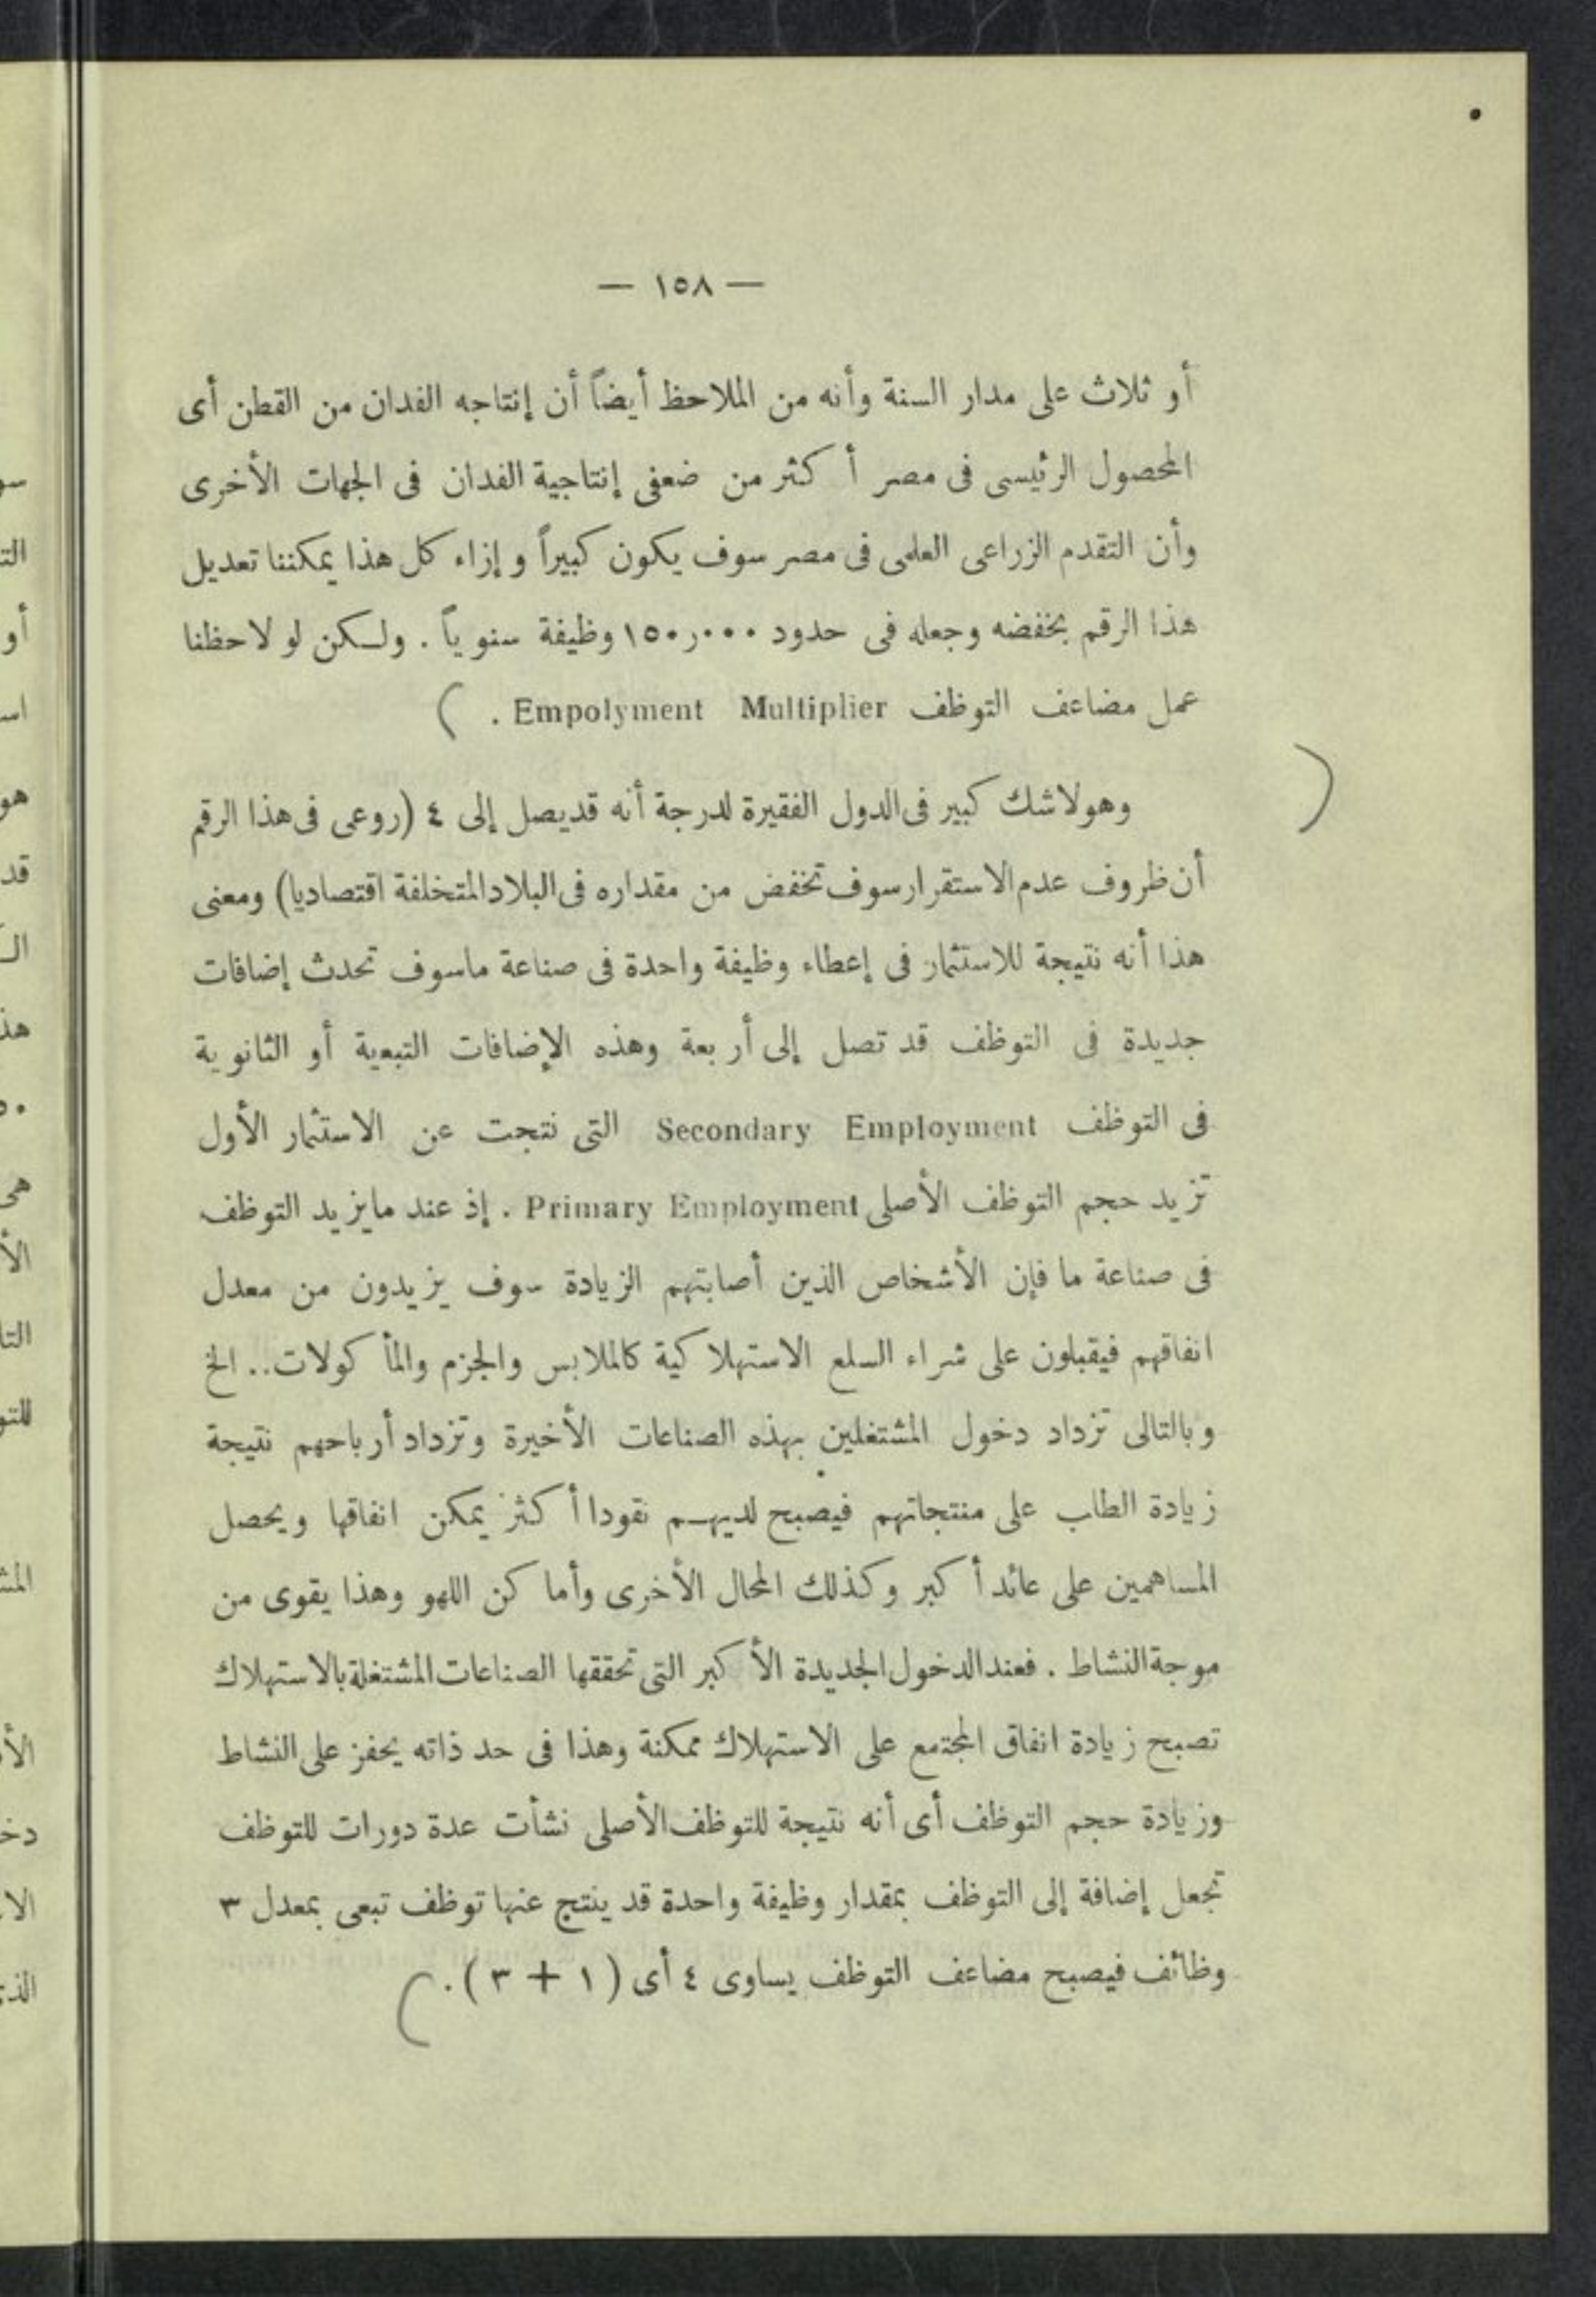 — ١٥٨ —
أو ثلاث على مدار السنة وأنه من الملاحظ أيضاً أن إنتاجه الفدان من القطن أى
المحصول الرئيسى فى مصر أكثر من ضعفى إنتاجية الفدان فى الجهات الأخرى
وأن التقدم الزراعى العلمى فى مصر سوف يكون كبيراً وإزاء كل هذا يمكننا تعديل
هذا الرقم بخفضه وجعله فى حدود ١٥٠٫٠٠٠ وظيفة سنوياً . ولكن لو لاحظنا
عمل مضاعف التوظف Empolyment Multiplier .
وهو لاشك كبير فى الدول الفقيرة لدرجة أنه قد يصل إلى ٤ (روعى فى هذا الرقم
أن ظروف عدم الاستقرار سوف تخفض من مقداره فى البلاد المتخلفة اقتصاديا) ومعنى
هذا أنه نتيجة للاستثمار فى إعطاء وظيفة واحدة فى صناعة ما سوف تحدث إضافات
جديدة فى التوظف قد تصل إلى أربعة وهذه الإضافات التبعية أو الثانوية
فى التوظف Secondary Employment التى نتجت عن الاستثمار الأول
تزيد حجم التوظف الأصلى Primary Employment . إذ عند ما يزيد التوظف
فى صناعة ما فإن الأشخاص الذين أصابتهم الزيادة سوف يزيدون من معدل
انفاقهم فيقبلون على شراء السلع الاستهلاكية كالملابس والجزم والمأكولات .. الخ
وبالتالى تزداد دخول المشتغلين بهذه الصناعات الأخيرة وتزداد أرباحهم نتيجة
زيادة الطاب على منتجاتهم فيصبح لديهم نقودا أكثر يمكن انفاقها ويحصل
المساهمين على عائد أكبر وكذلك المحال الأخرى وأماكن اللهو وهذا يقوى من
موجة النشاط . فعند الدخول الجديدة الأكبر التى تحققها الصناعات المشتغلة بالاستهلاك
تصبح زيادة انفاق المجتمع على الاستهلاك ممكنة وهذا فى حد ذاته يحفز على النشاط
وزيادة حجم التوظف أى أنه نتيجة للتوظف الأصلى نشأت عدة دورات للتوظف
تجعل إضافة إلى التوظف بمقدار وظيفة واحدة قد ينتج عنها توظف تبعى بمعدل ٣
وظائف فيصبح مضاعف التوظف يساوى ٤ أى ( ١ + ٣ ) .